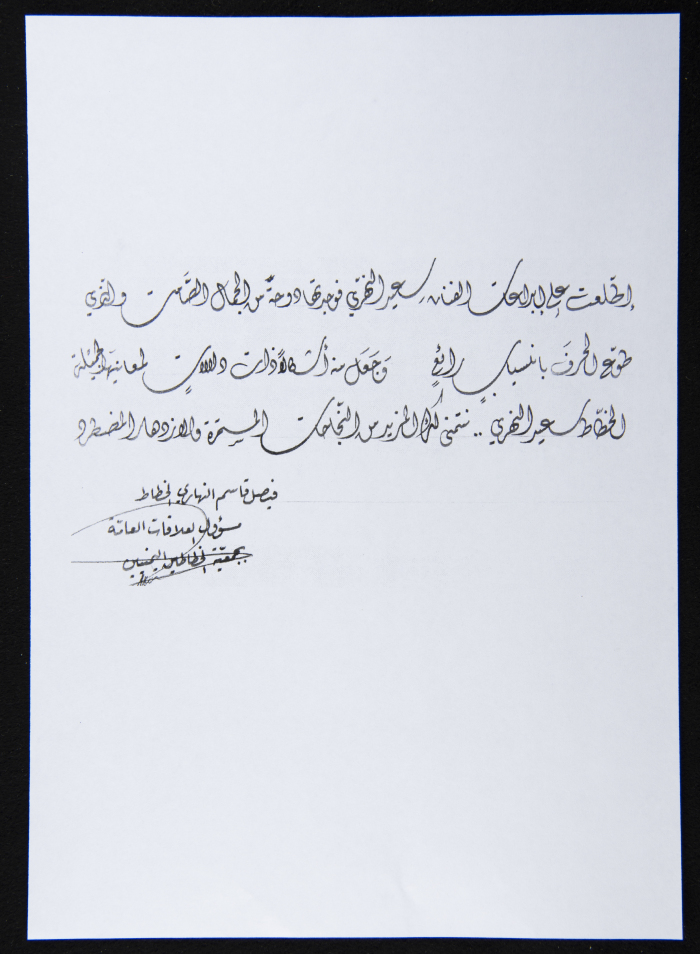 إطّلعت على إبداعات الفنان سعيد النهري فوجدتها دوحةً من الجمال الصَّامت والذي
طوّع الحرفَ بانسيابٍ رائعٍ وَجَعَل منه أشكالاً ذات دلالاتٍ لمعانيها الجميلة
الخطّاط سعيد النهري .. نتمنى لك المزيد من النّجاحات المستمرّة والازدهار المضطرد
فيصل قاسم النهاري الخطاط
مسؤول العلاقات العامّة
بجمعيّة الخطاطين اليمنيين